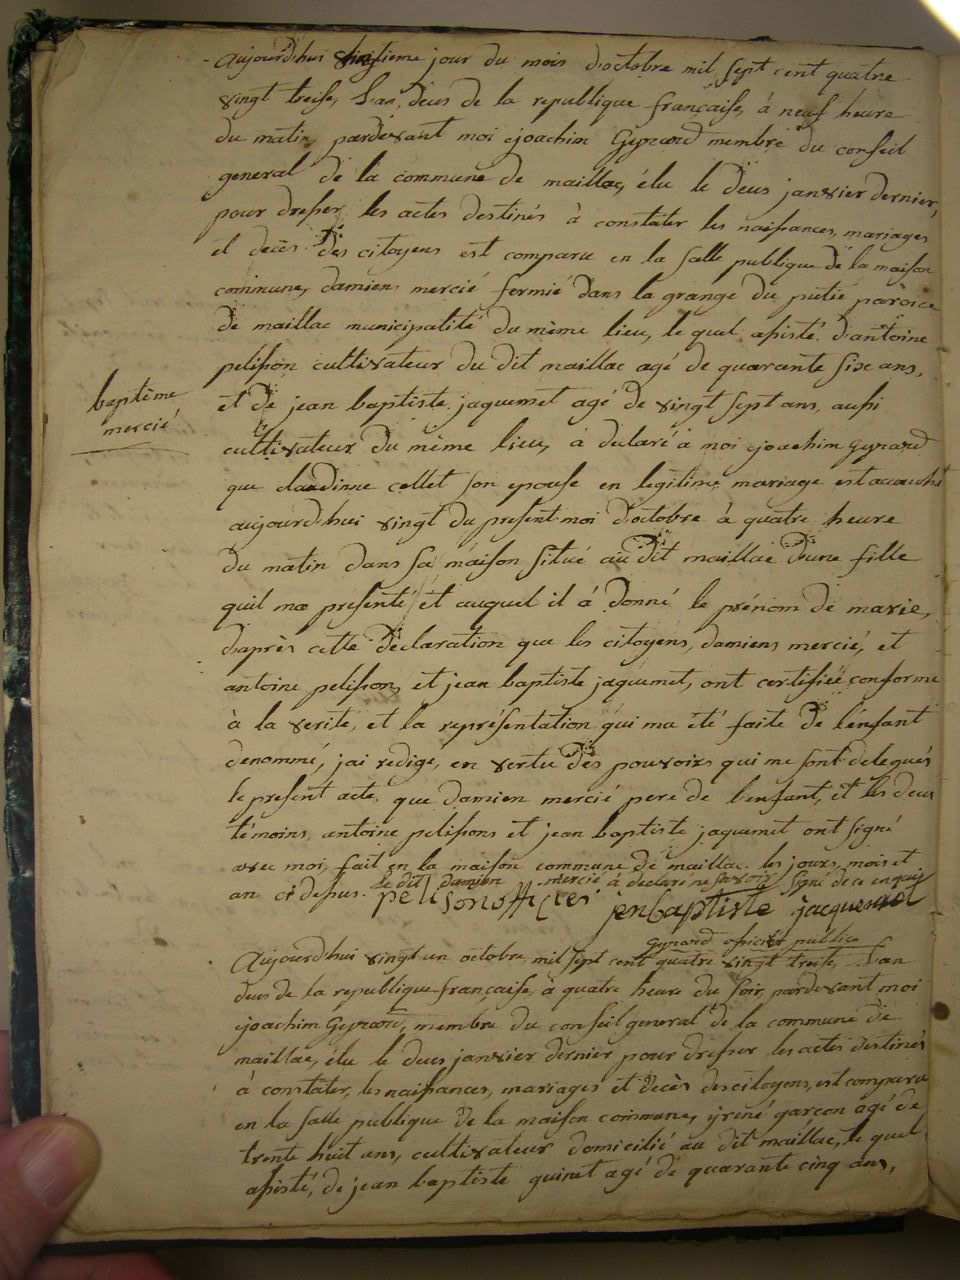 aujourdhui vingtieme jour du mois doctobre mil sept cent quatre
vingt treise, Lan deus de la republique françaises, á neuf heure
du matin pardevant moi ejoachim Gyrard membre du conseil
general de la commune de maillac, élu le deus janvier dernier,
pour dresser les actes destinés à constater les naissances, mariages
et decès des citoyens est comparu en la salle publique de la maison
commune, damiens mercié fermié dans la grange du putié paroice
de maillac municipalité du même lieu, le quel assisté d'antoine
pelisson cultivateur du dit maillac agé de quarante sixe ans,
et de jean baptiste jaquemet agé de vingt sept ans, aussi
baptême
mercié
cultivateur du même lieu, à declaré à moi ejoachim Gyrard
que claudinne collet son epouse en legitime mariage est accouché
aujourdhui vingt du present moi d'octobre à quatre heure
du matin dans sa maison situé au dit maillac d'une fille
quil ma presenté et auquel il á donné le prénom de marie,
daprès cette declaration que les citoyens, damiens mercié, et
antoine pelisson, et jean baptiste jaquemet, ont certifiéé conforme
à la verité, et la représentation qui ma été faite de l'enfant
denommé, jai redigé, en vertu des pouvoirs qui me sont delegués
le present acte, que damien mercié pere de l'enfant, et les deus
témoins, antoine pelissons et jean baptiste jaquemet ont signé
avec moi, fait en la maison commune de maillac les jours, mois et
an ci depus. le dit damien mercié á declaré ne savoir signé de ce enquis
pelison jenbaptiste jacquemet
Gyrard officier publice
Aujourdhui vingt un octobre mil sept cent quatre vingt treise, Lan
deus de la republique française, à quatre heure du soir, pardevant moi
ejoachim Gyrard, membre du conseil general de la commune de
maillac, élu le deus janvier dernier pour dresser les actes destinés
à constater, les naissances, mariages et decès des citoyens, est comparu
en la salle publique de la maison commune, yrené garçon agé de
trente huit ans, cultivateur domicilié au dit maillac, le quel
assisté, de jean baptiste guinet agé de quarante cinq ans,